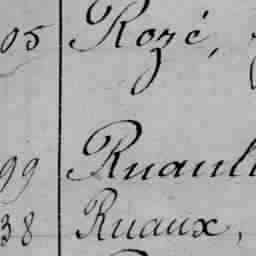 05 Rozé,
99 Ruaul
38 Ruaux,